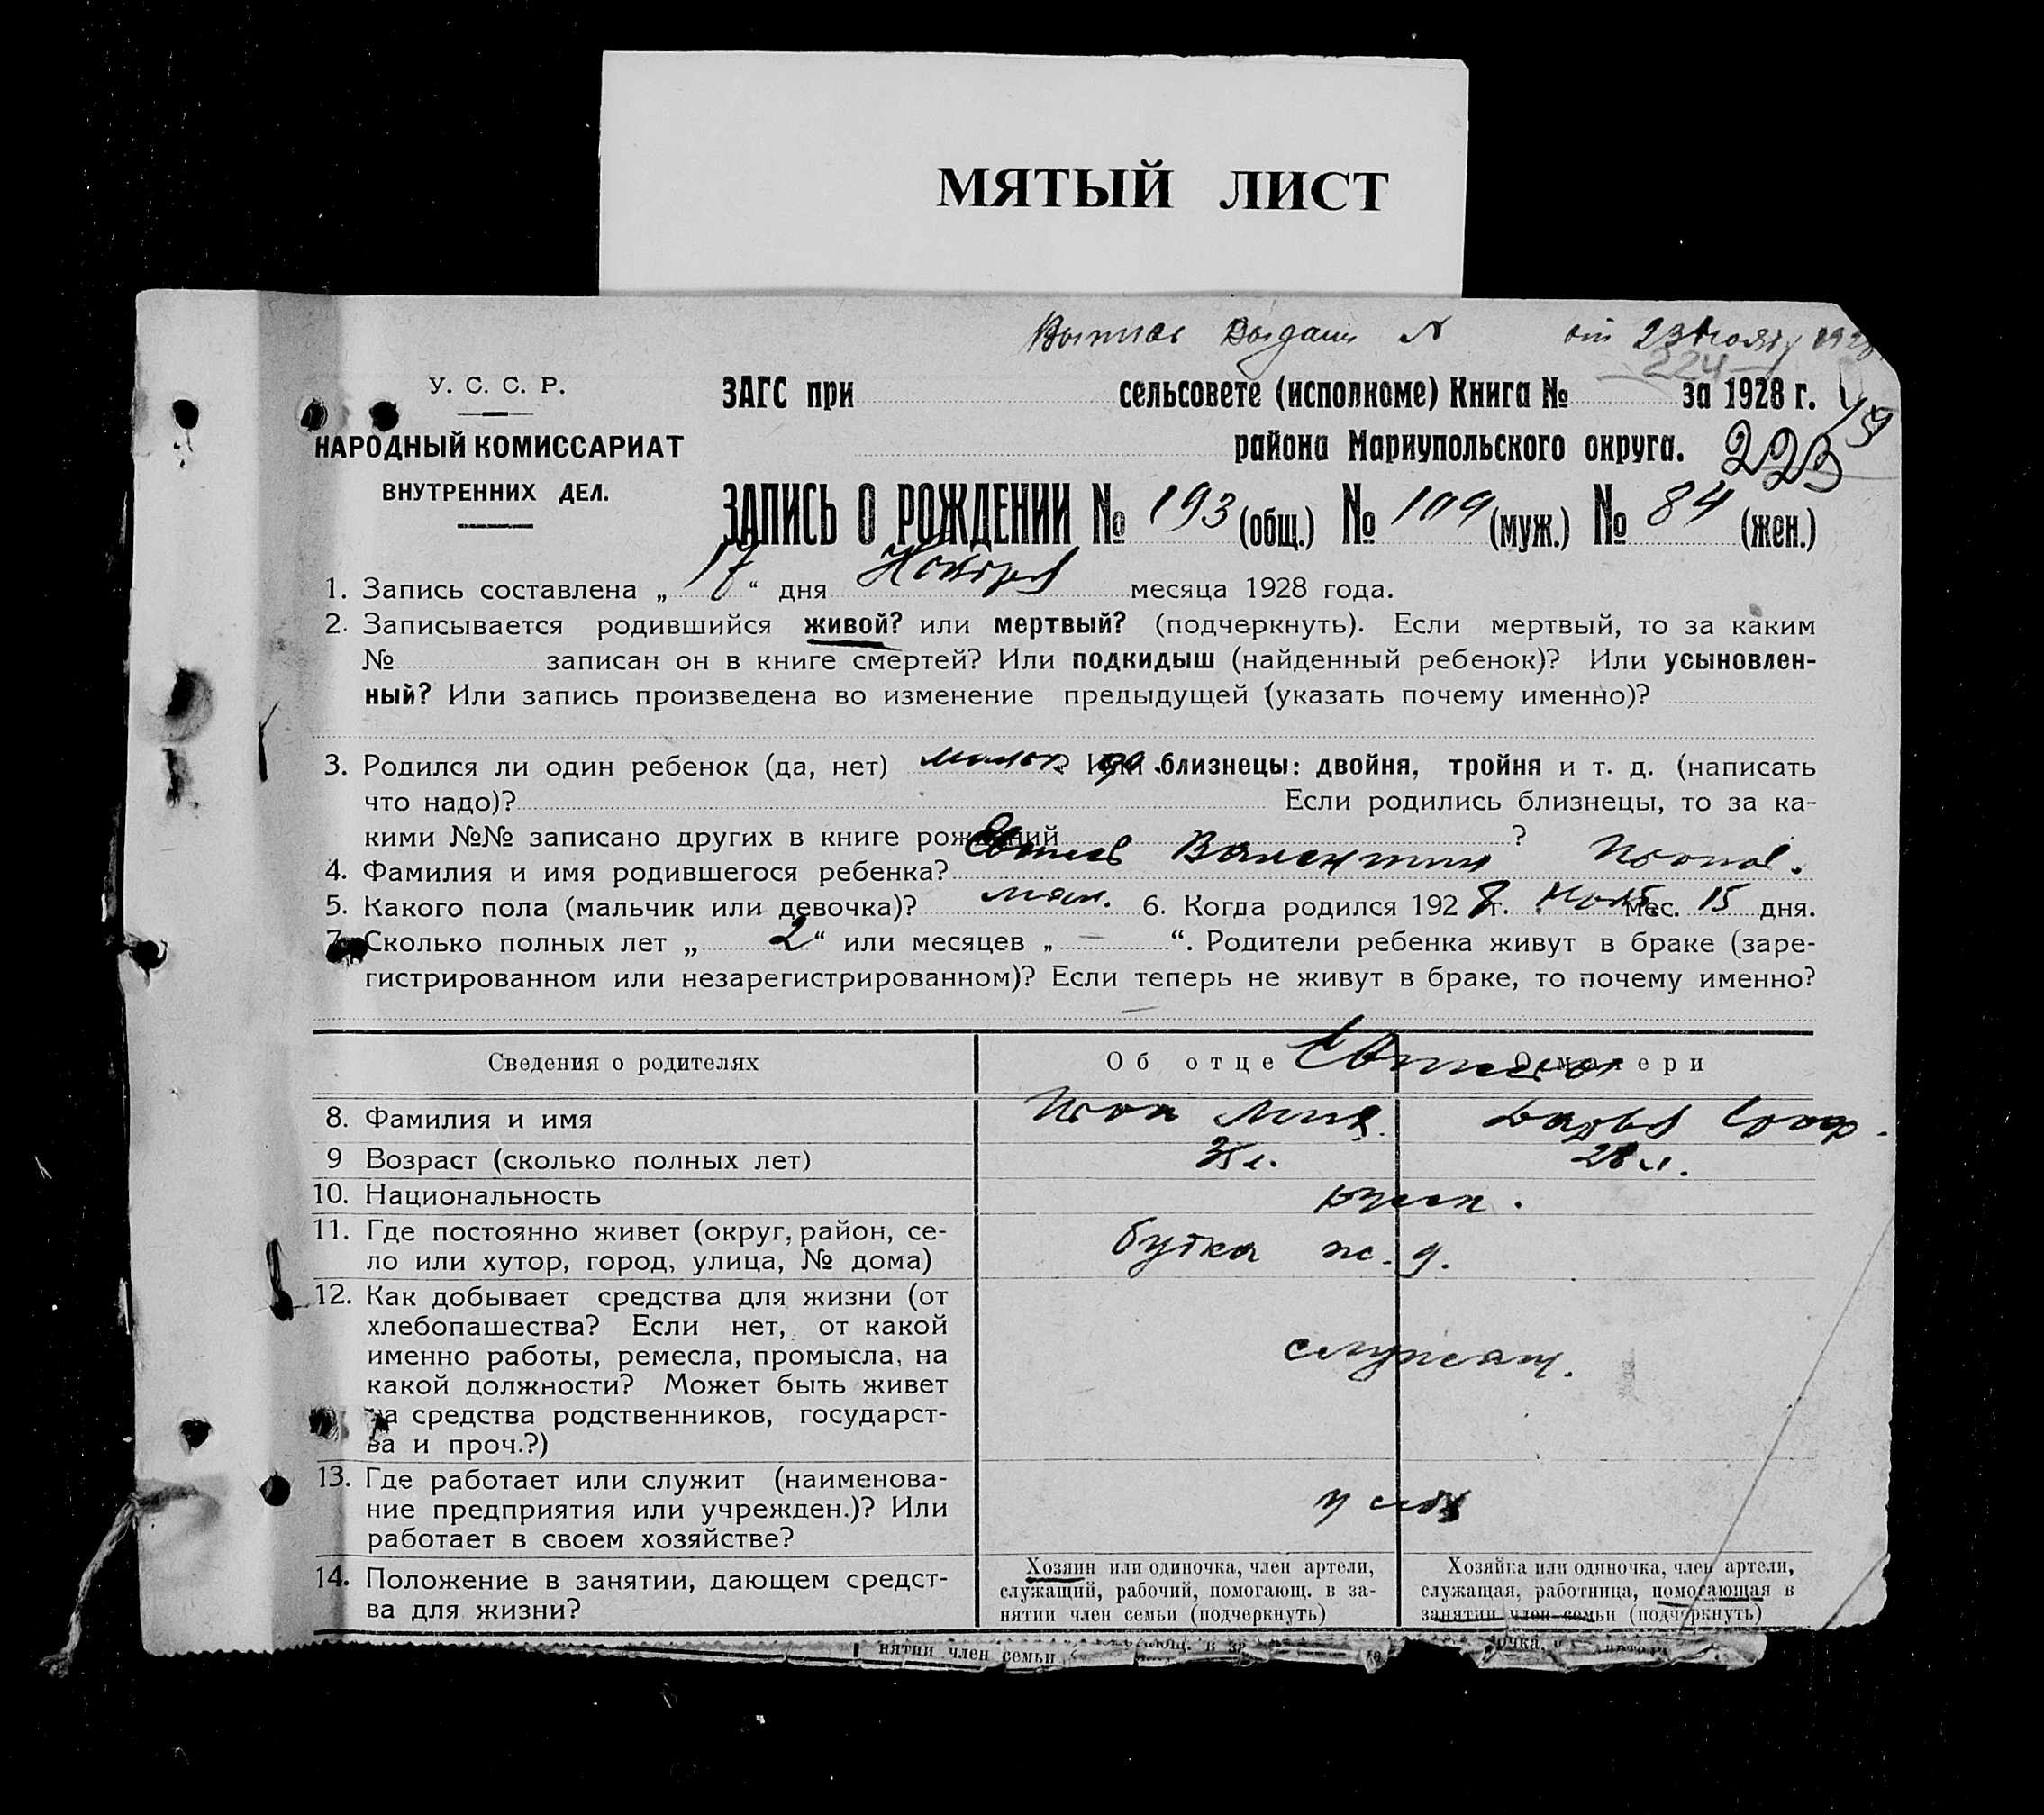 МЯТЫЙ ЛИСТ
Выпись выдана № от 23 ноября 1928
224
У. С. С. Р.
ЗАГС при сельсовете (исполкоме) Книга № за 1928 г.
НАРОДНЫЙ КОМИССАРИАТ
района Мариупольского округа.
223
ВНУТРЕННИХ ДЕЛ.
ЗАПИСЬ О РОЖДЕНИИ № 193 (общ.) № 109 (муж.) № 84 (жен.)
1. Запись составлена „ 17 “ дня Ноября месяца 1928 года.
2. Записывается родившийся живой? или мертвый? (подчеркнуть). Если мертвый, то за каким
№ записан он в книге смертей? Или подкидыш (найденный ребенок)? Или усыновлен-
ный? Или запись произведена во изменение предыдущей (указать почему именно)?
3. Родился ли один ребенок (да, нет) Или близнецы: двойня, тройня и т. д. (написать
что надо)? Если родились близнецы, то за ка-
кими №№ записано других в книге рождений ?
4. Фамилия и имя родившегося ребенка? Валентин
5. Какого пола (мальчик или девочка)? мал. 6. Когда родился 1928 г. Нояб. мес. 15 дня.
7. Сколько полных лет „ 2 “ или месяцев „ — “. Родители ребенка живут в браке (заре-
гистрированном или незарегистрированном)? Если теперь не живут в браке, то почему именно?
—
Сведения о родителях Об отце О матери
8. Фамилия и имя Дарья
9 Возраст (сколько полных лет) 28 л.
10. Национальность русск.
11. Где постоянно живет (округ, район, се-
ло или хутор, город, улица, № дома) будка ж. д.
12. Как добывает средства для жизни (от
хлебопашества? Если нет, от какой
именно работы, ремесла, промысла, на
какой должности? Может быть живет
на средства родственников, государст-
ва и проч.?)
служащ.
13. Где работает или служит (наименова-
ние предприятия или учрежден.)? Или
работает в своем хозяйстве?
14. Положение в занятии, дающем средст-
ва для жизни?
Хозяин или одиночка, член артели,
служащий, рабочий, помогающ. в за-
нятии член семьи (подчеркнуть)
Хозяйка или одиночка, член артели,
служащая, работница, помогающая в
занятии член семьи (подчеркнуть)
нятии член семьи